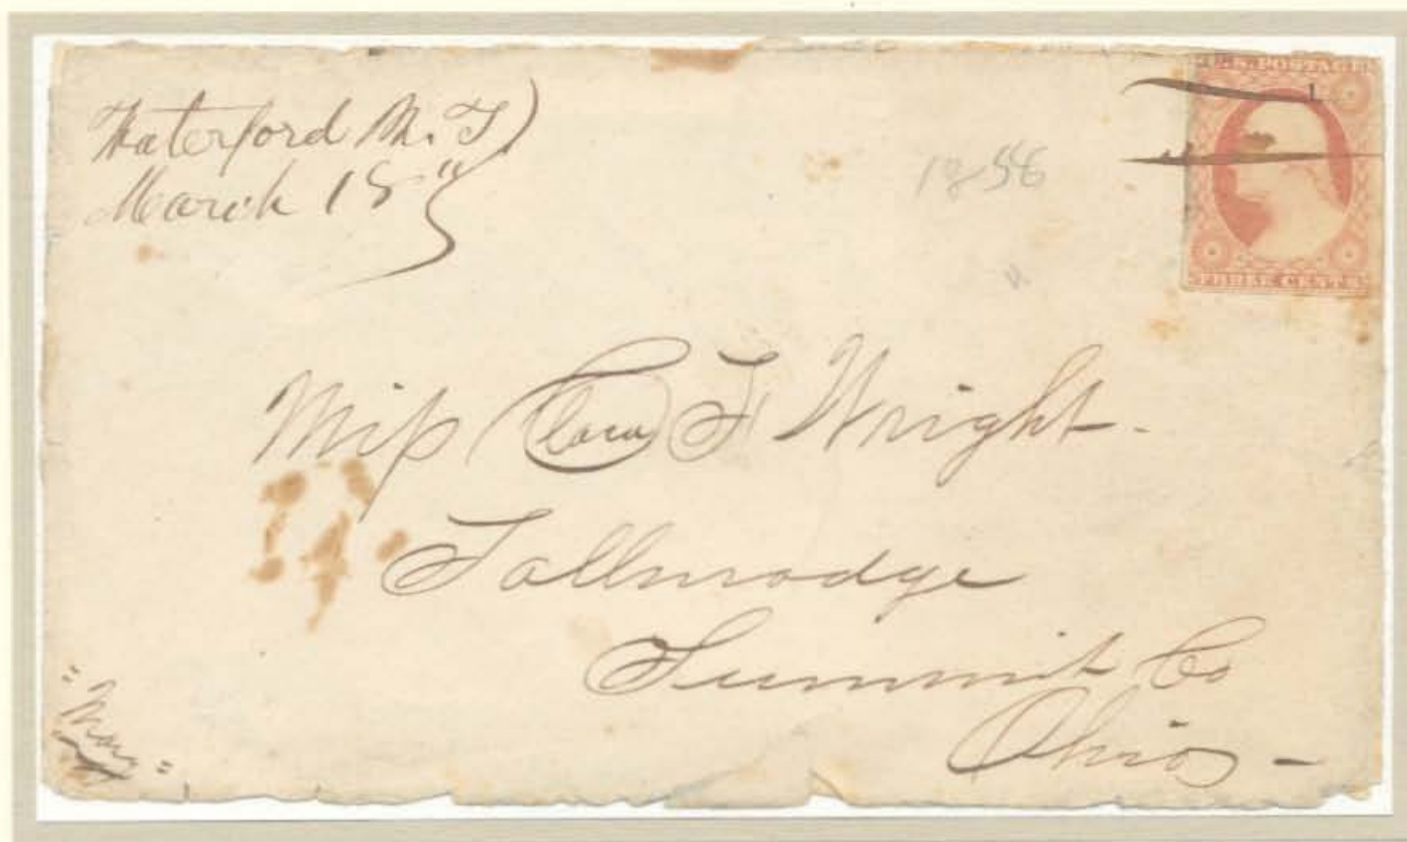 Waterford M. T)
March 18"
1856
U.S. POSTAGE
THREE CENTS
Miss Clara F Wright.
Tallmadge
Summit Co
Ohio -